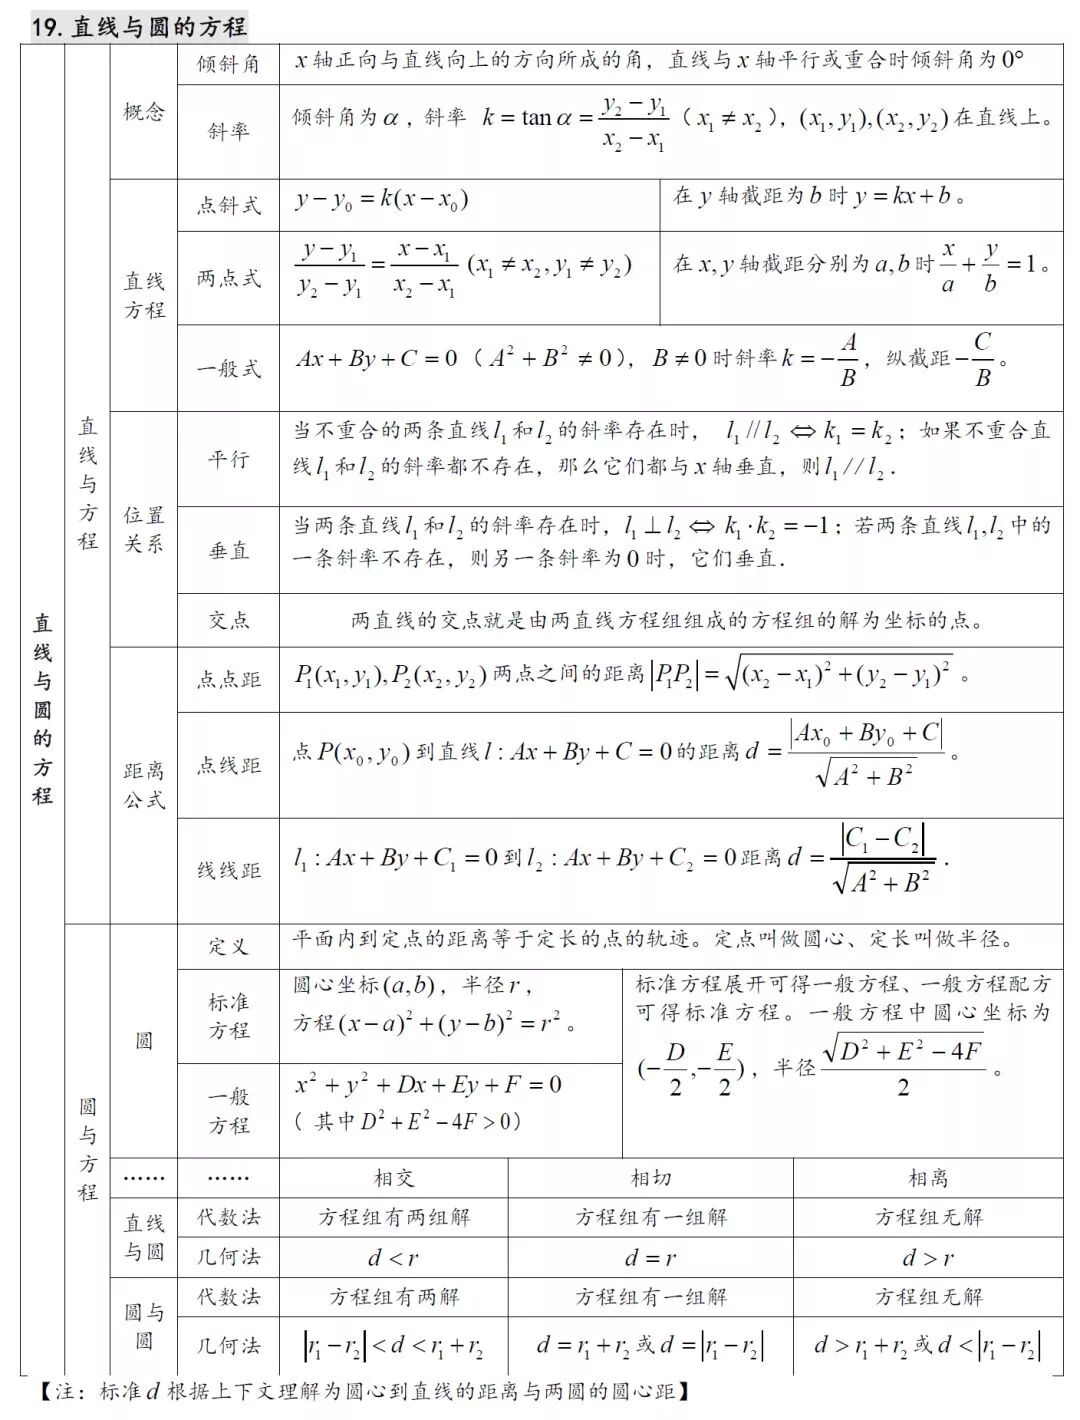 19.直线与圆的方程
直线与圆的方程
直线与方程
概念
倾斜角
x轴正向与直线向上的方向所成的角，直线与x轴平行或重合时倾斜角为0°
斜率
倾斜角为α，斜率 k=tanα=(y₂−y₁)/(x₂−x₁)（x₁≠x₂），(x₁,y₁),(x₂,y₂)在直线上。
直线
方程
点斜式
y−y₀=k(x−x₀)
在y轴截距为b时y=kx+b。
两点式
(y−y₁)/(y₂−y₁)=(x−x₁)/(x₂−x₁) (x₁≠x₂,y₁≠y₂)
在x,y轴截距分别为a,b时x/a+y/b=1。
一般式
Ax+By+C=0（A²+B²≠0），B≠0时斜率k=−A/B，纵截距−C/B。
位置
关系
平行
当不重合的两条直线l₁和l₂的斜率存在时，l₁//l₂⇔k₁=k₂；如果不重合直
线l₁和l₂的斜率都不存在，那么它们都与x轴垂直，则l₁//l₂.
垂直
当两条直线l₁和l₂的斜率存在时，l₁⊥l₂⇔k₁·k₂=−1；若两条直线l₁,l₂中的
一条斜率不存在，则另一条斜率为0时，它们垂直.
交点
两直线的交点就是由两直线方程组组成的方程组的解为坐标的点。
距离
公式
点点距
P₁(x₁,y₁),P₂(x₂,y₂)两点之间的距离|P₁P₂|=√((x₂−x₁)²+(y₂−y₁)²)。
点线距
点P(x₀,y₀)到直线l:Ax+By+C=0的距离d=|Ax₀+By₀+C|/√(A²+B²)。
线线距
l₁:Ax+By+C₁=0到l₂:Ax+By+C₂=0距离d=|C₁−C₂|/√(A²+B²).
圆与方程
圆
定义
平面内到定点的距离等于定长的点的轨迹。定点叫做圆心、定长叫做半径。
标准
方程
圆心坐标(a,b)，半径r，
方程(x−a)²+(y−b)²=r²。
标准方程展开可得一般方程、一般方程配方
可得标准方程。一般方程中圆心坐标为
(−D/2,−E/2)，半径√(D²+E²−4F)/2。
一般
方程
x²+y²+Dx+Ey+F=0
（其中D²+E²−4F>0）
……
……
相交
相切
相离
直线
与圆
代数法
方程组有两组解
方程组有一组解
方程组无解
几何法
d<r
d=r
d>r
圆与
圆
代数法
方程组有两解
方程组有一组解
方程组无解
几何法
|r₁−r₂|<d<r₁+r₂
d=r₁+r₂或d=|r₁−r₂|
d>r₁+r₂或d<|r₁−r₂|
【注：标准d根据上下文理解为圆心到直线的距离与两圆的圆心距】